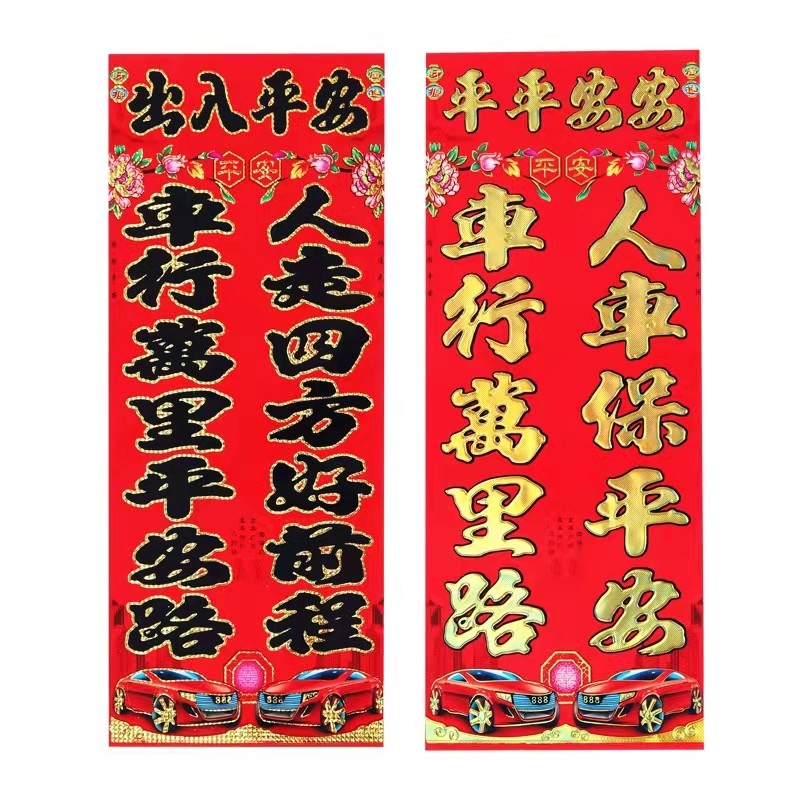 出入平安
平安
車行萬里平安路
人走四方好前程
888
888
平平安安
平安
車行萬里路
人車保平安
888
888